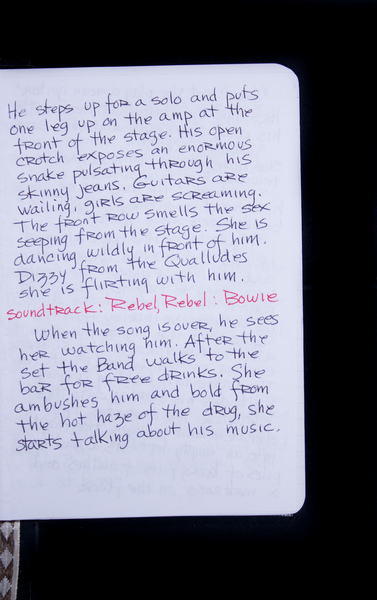 He steps up for a solo and puts
one leg up on the amp at the
front of the stage. His open
crotch exposes an enormous
snake pulsating through his
skinny jeans. Guitars are
wailing, girls are screaming.
The front row smells the sex
seeping from the stage. She is
dancing wildly in front of him.
Dizzy from the Qualludes
she is flirting with him.
soundtrack: Rebel, Rebel: Bowie
When the song is over, he sees
her watching him. After the
set the Band walks to the
bar for free drinks. She
ambushes him and bold from
the hot haze of the drug, she
starts talking about his music.